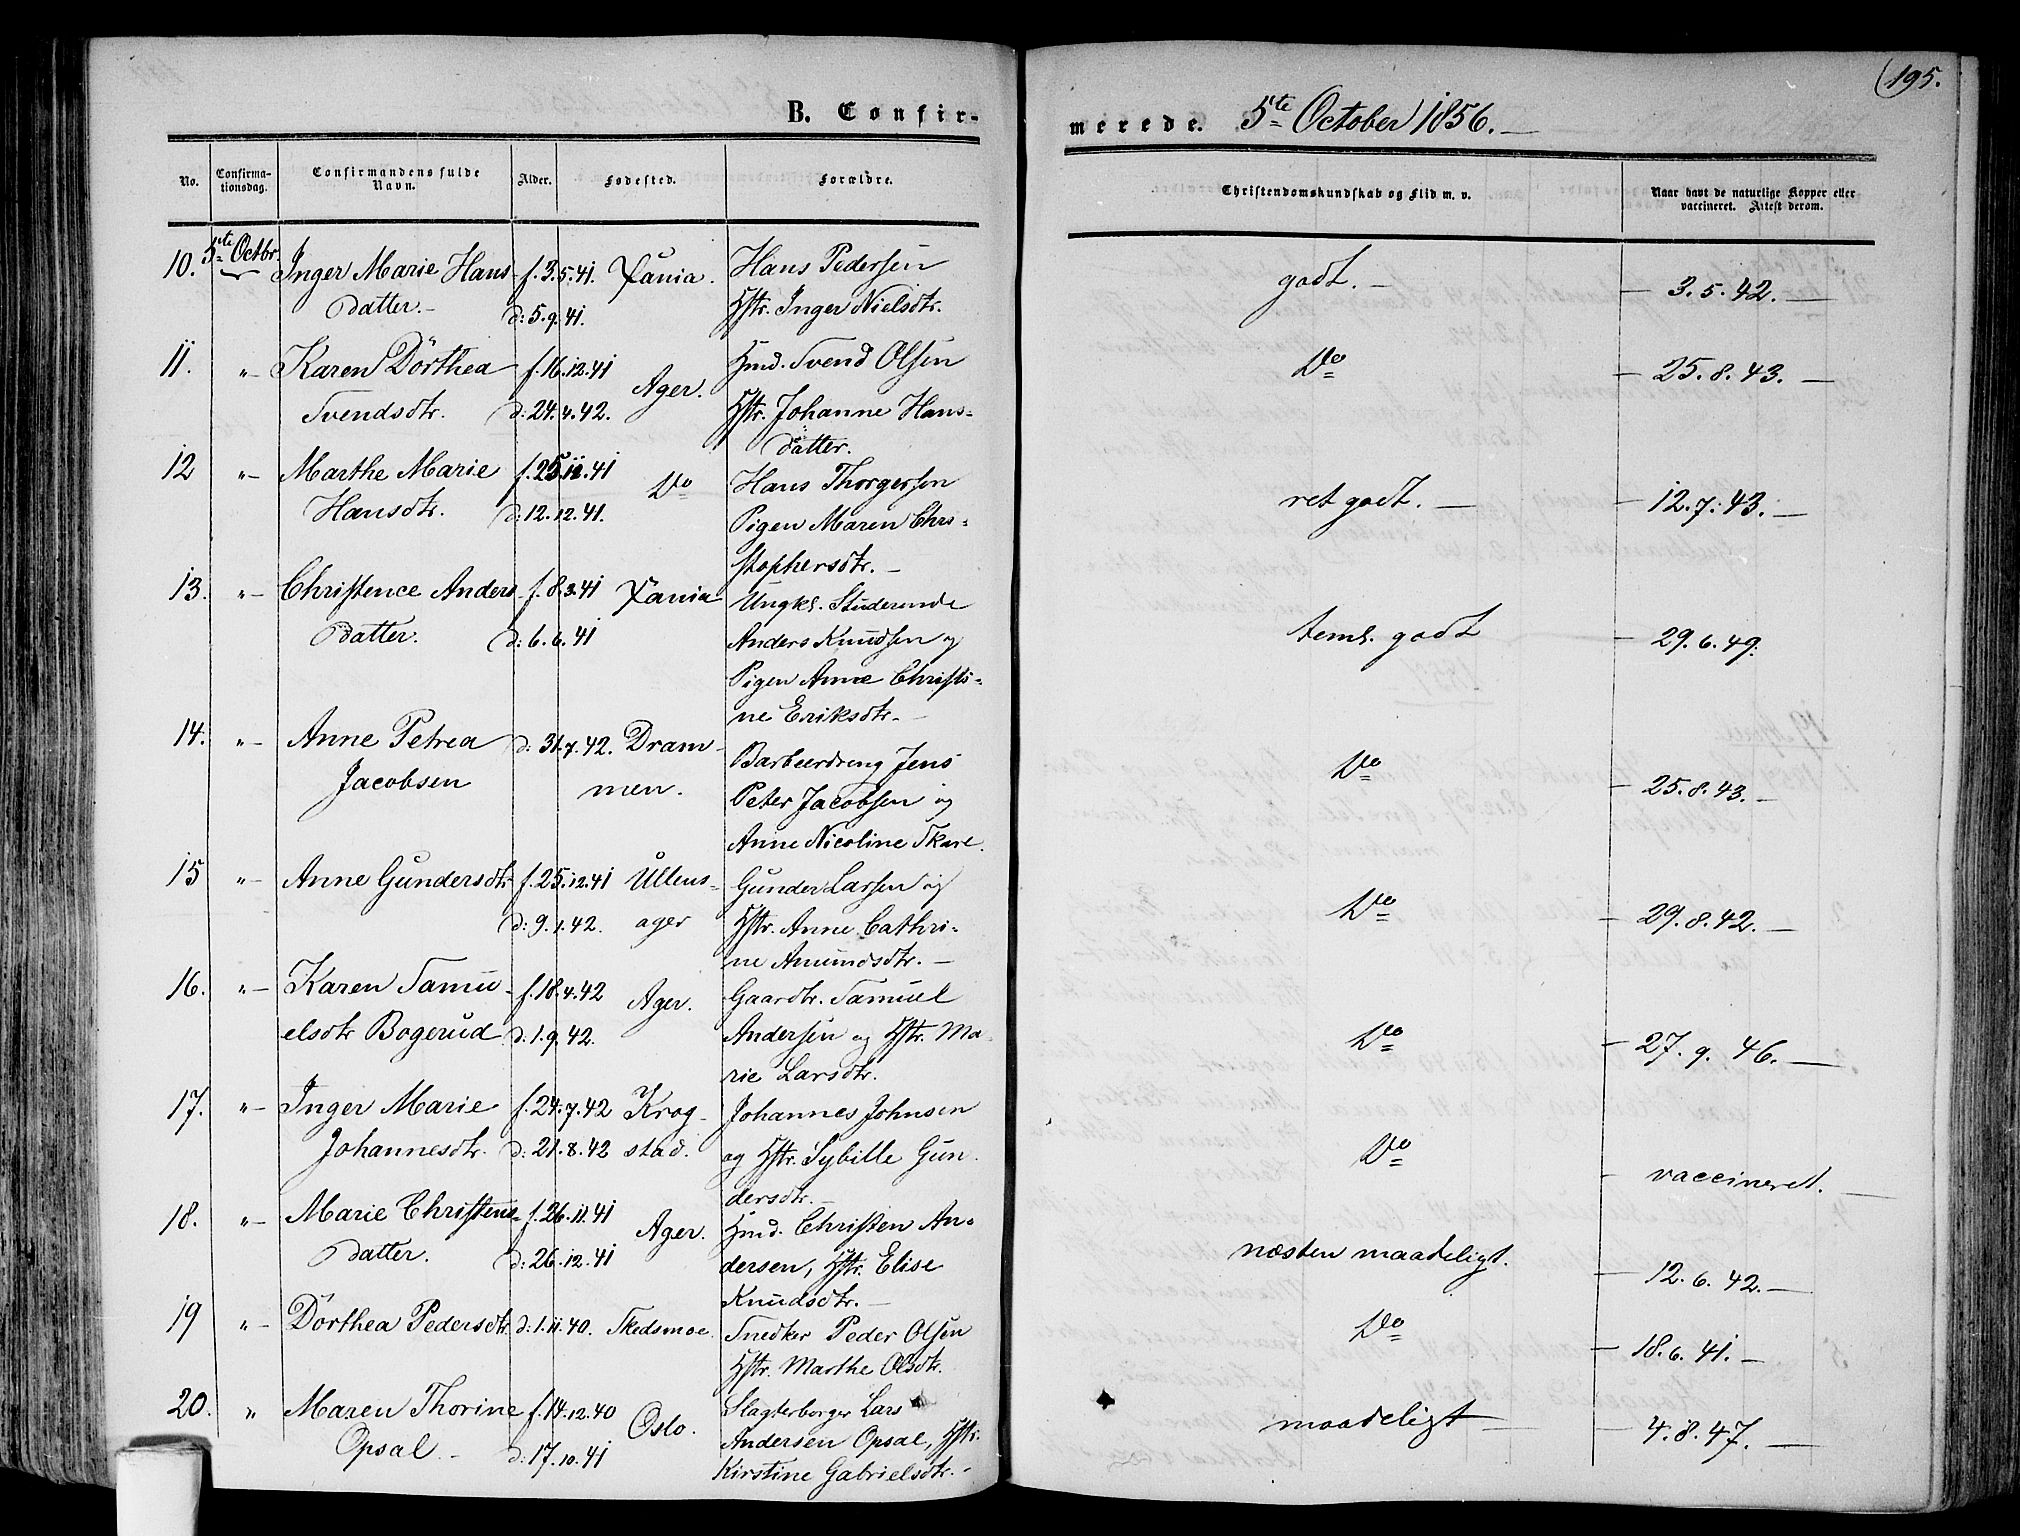 195.
B. Confirmerede. 5te October 1856.
No. Confirmationsdag. Confirmandens fulde Navn. Alder. Fødested. Forældre. Christendomskundskab og Flid m. v. Naar havt de naturlige Kopper eller vaccineret. Attest derom.
10. 5te Octbr. Inger Marie Hans- f. 3.5.41. Xania. Hans Pedersen godt. — 3.5.42. —
datter. d: 5.9.41. Hstr. Inger Nielsdtr.
11. " Karen Dörthea f. 16.12.41 Ager. Hmd. Svend Olsen Do — 25.8.43. —
Svendsdtr. d: 24.4.42. Hstr. Johanne Hans-
datter.
12 " Marthe Marie f. 25.11.41 Do Hans Thorgersen ret godt. — 12.7.43. —
Hansdtr. d: 12.12.41. Pigen Maren Chri-
stophersdtr. —
13. " Christence Anders- f. 8.3.41 Xania Ungkl. Studerende teml. godt — 29.6.49.
datter. d: 6.6.41 Anders Knudsen og
Pigen Anne Christi-
ne Eriksdtr. —
14. " Anne Petrea d: 31.7.42. Dram- Barbeerdreng Jens Do — 25.8.43. —
Jacobsen men. Peter Jacobsen og
Anne Nicoline Skare.
15 " Anne Gundersdtr. f. 25.12.41 Ullens- Gunder Larsen og Do — 29.8.42. —
d: 9.1.42. ager Hstr. Anne Cathri-
ne Amundsdtr. —
16. " Karen Samu- f. 18.4.42 Ager. Gaardtr. Samuel Do — 27.9.46. —
elsdtr Bogerud d. 1.9.42. Andersen og Hstr. Ma-
rie Larsdtr.
17. " Inger Marie f. 24.7.42 Krog- Johannes Johnsen Do — vaccineret. —
Johannesdtr. d: 21.8.42 stad. og Hstr. Sybille Gun-
dersdtr. —
18. " Marie Christens- f. 26.11.41 Ager. Hmd. Christen An- næsten maadeligt. — 12.6.42. —
datter. d: 26.12.41 dersen, Hstr. Elise
Knudsdtr. —
19 " Dörthea Pedersdtr. d: 1.11.40. Skedsmoe. Snedker Peder Olsen Do — 18.6.41. —
Hstr. Marthe Olsdtr.
20. " Maren Thorine f. 14.12.40 Oslo. Slagterborger Lars maadeligt — 4.8.47. —
Opsal. — d: 17.10.41 Andersen Opsal, Hstr.
Kirstine Gabrielsdtr. —